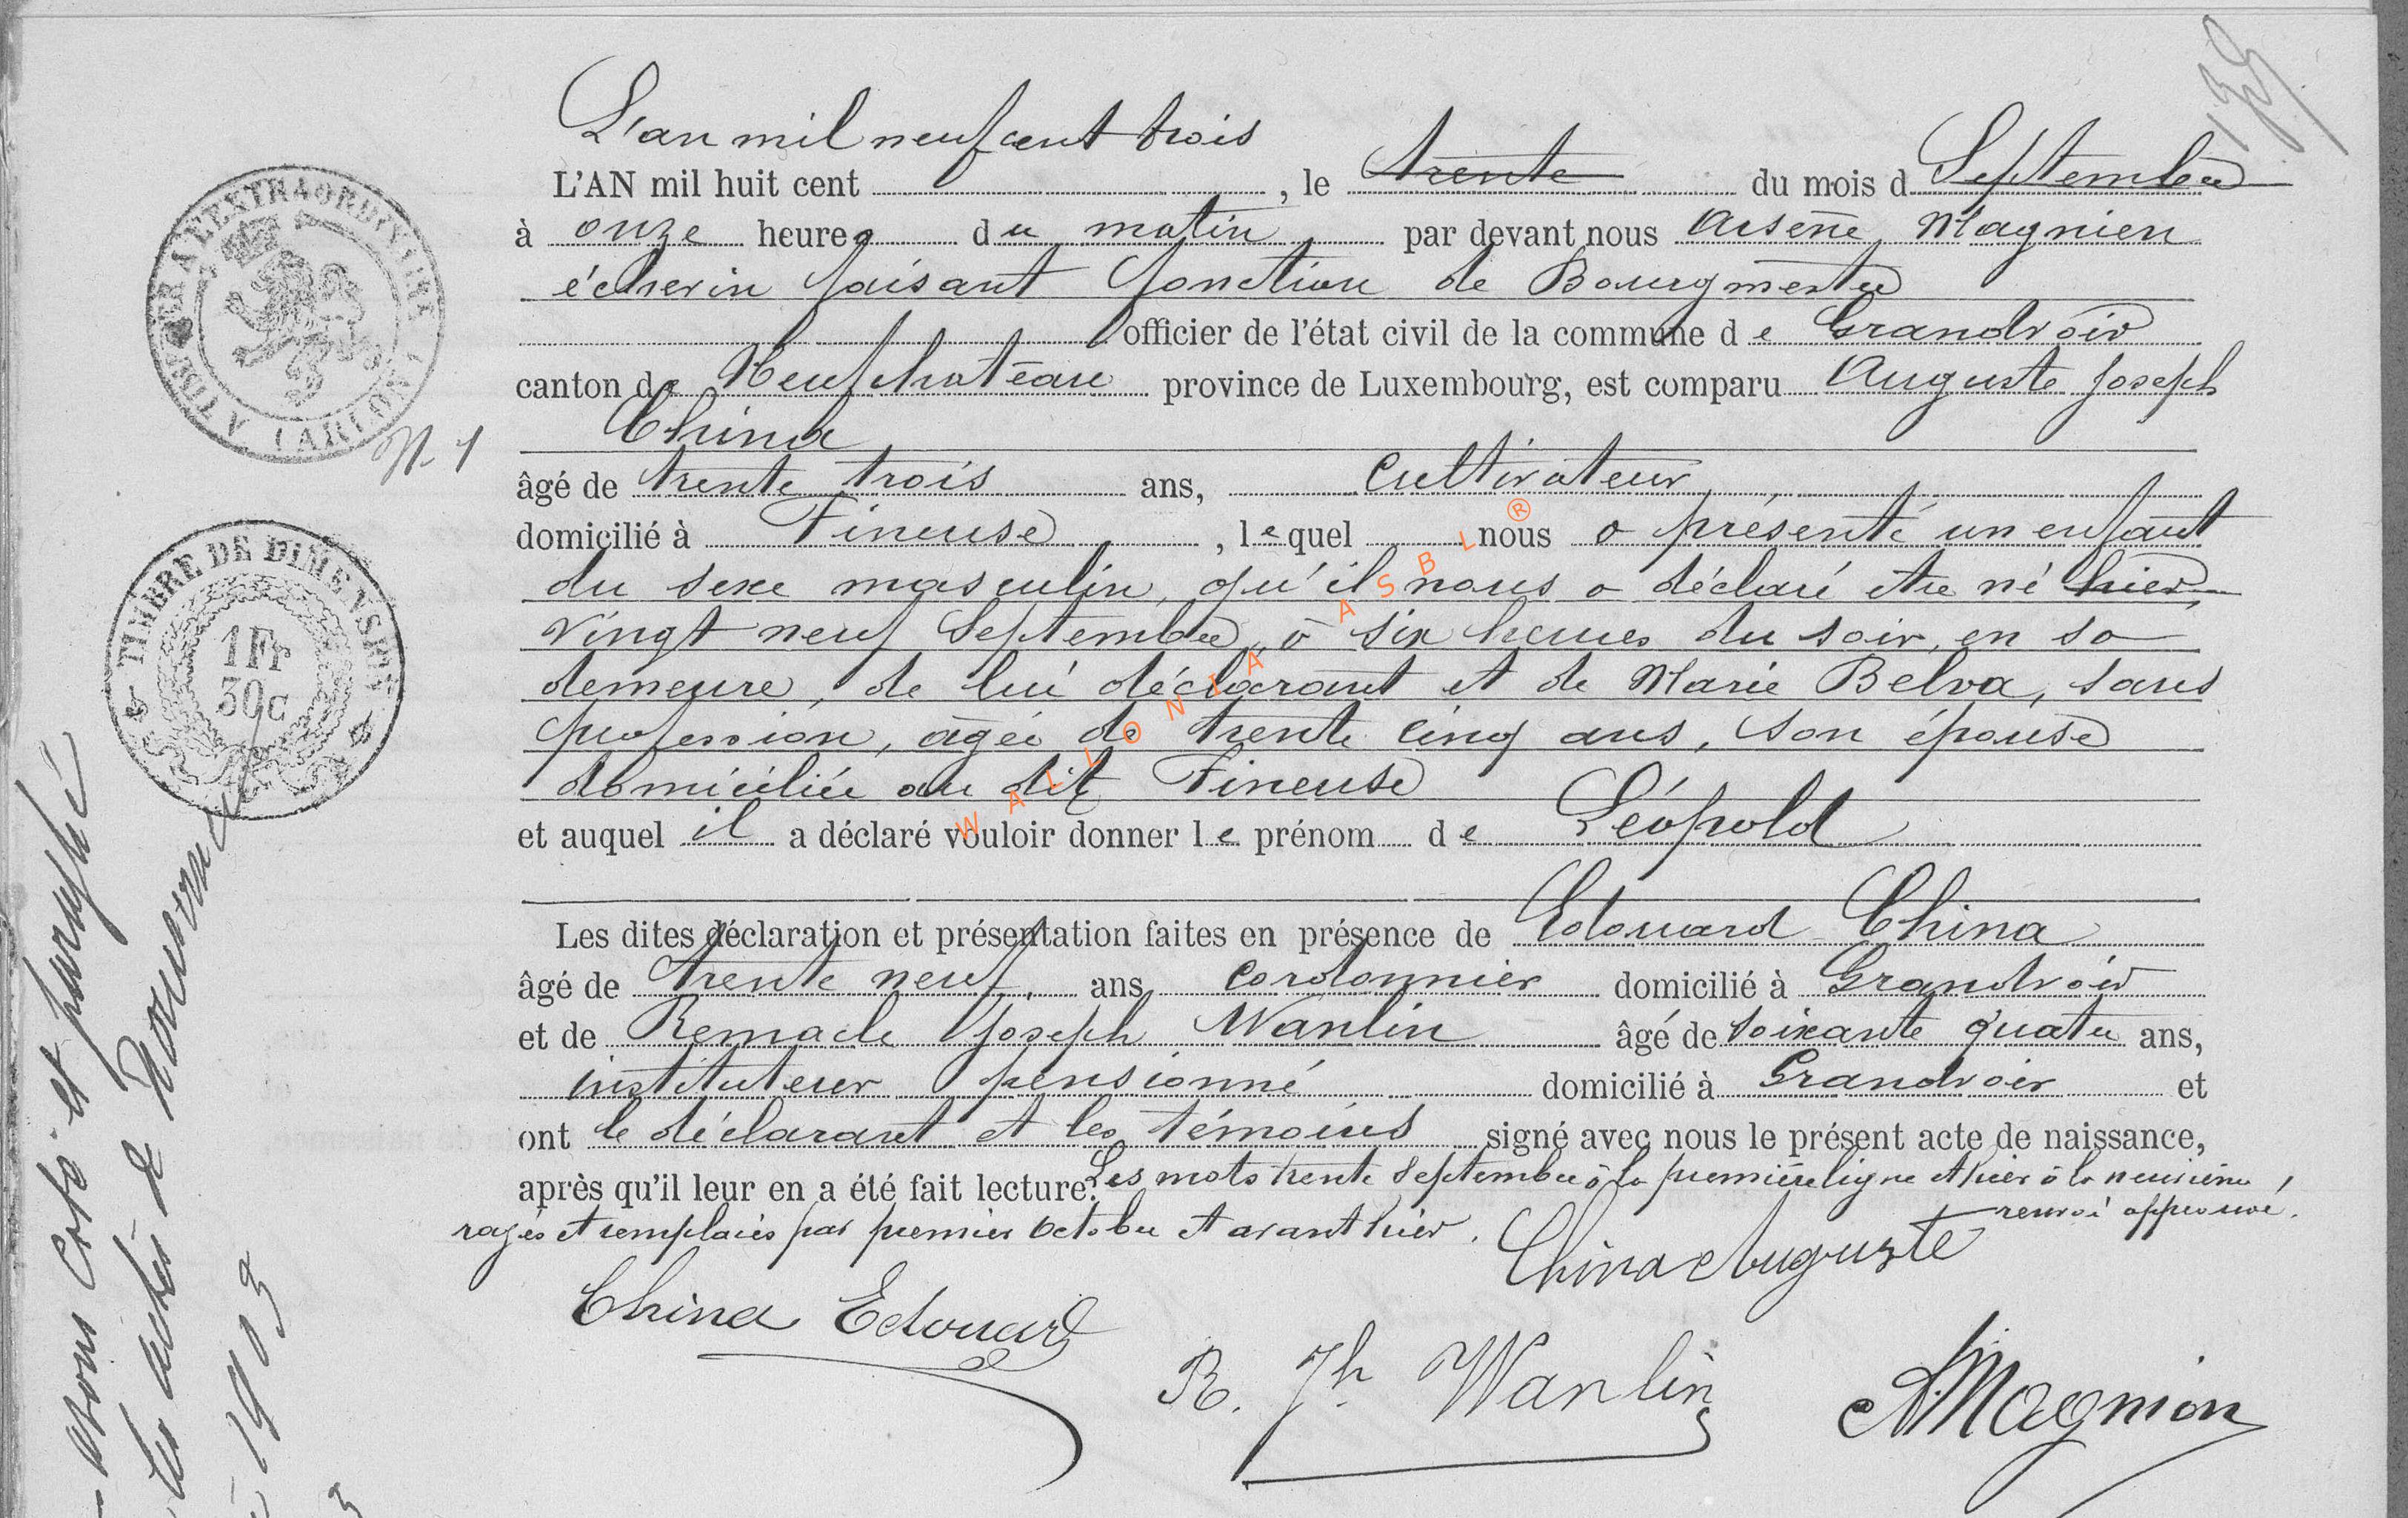 135
L'an mil neuf cent trois
L'AN mil huit cent , le trente du mois d Septembre
à onze heures du matin par devant nous Arsène Magnien
échevin faisant fonction de Bourgmestre
officier de l'état civil de la commune de Grandvoir
canton de Neufchâteau province de Luxembourg, est comparu Auguste Joseph
China
âgé de trente trois ans, cultivateur
domicilié à Tineuse , lequel nous a présenté un enfant
du sexe masculin, qu'il nous a déclaré être né hier,
vingt neuf Septembre, à six heures du soir, en sa
demeure, de lui déclarant et de Marie Belva, sans
profession, âgée de trente cinq ans, son épouse
domiciliée au dit Tineuse
et auquel il a déclaré vouloir donner le prénom de Léopold
Les dites déclaration et présentation faites en présence de Edouard China
âgé de trente neuf ans cordonnier domicilié à Grandvoir
et de Remacle Joseph Wanlin âgé de soixante quatre ans,
instituteur pensionné domicilié à Grandvoir et
ont le déclarant et les témoins signé avec nous le présent acte de naissance,
après qu'il leur en a été fait lecture. Les mots trente Septembre à la première ligne et hier à la neuvième,
rayés et remplacés par premier octobre et avant hier. renvoi approuvé.
China Auguste
China Edouard
R. Jh Wanlin
A Magnien
TIMBRE DE DIMENSION
1Fr
30c
(ARLON)
N. 1
avons coté et paraphé
les actes de
1903
WALLONIA ASBL ®